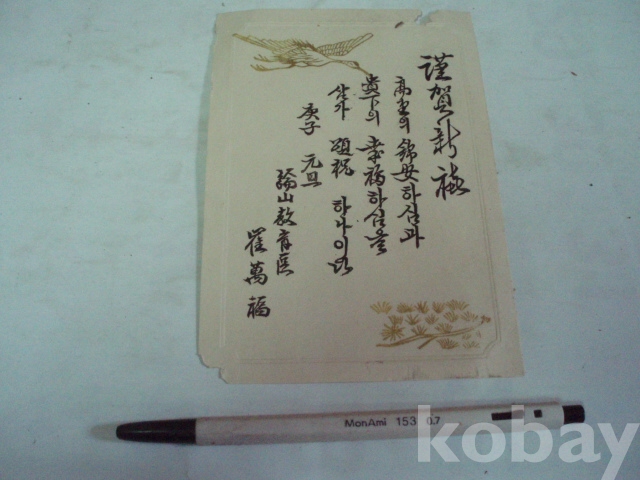 謹賀新禧
高堂의 錦安하심과
貴下의 幸福하심을
삼가 頌祝 하나이다
庚子 元旦
山敎育區
崔萬福
MonAmi 153 0.7
kobay